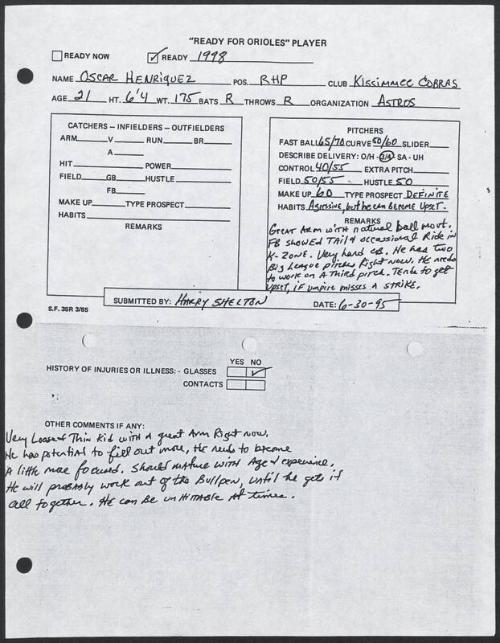 "READY FOR ORIOLES" PLAYER
READY NOW ✓ READY 1998
NAME OSCAR HENRIQUEZ POS. RHP CLUB KISSIMMEE COBRAS
AGE 21 HT. 6'4 WT. 175 BATS R THROWS R ORGANIZATION ASTROS
CATCHERS - INFIELDERS - OUTFIELDERS
ARM V RUN BR
A
HIT POWER
FIELD GB HUSTLE
FB
MAKE UP TYPE PROSPECT
HABITS
REMARKS
PITCHERS
FAST BALL 65/70 CURVE 50/60 SLIDER
DESCRIBE DELIVERY: O/H - 3/4 - SA - UH
CONTROL 40/55 EXTRA PITCH
FIELD 50/55 HUSTLE 50
MAKE UP 60 TYPE PROSPECT DEFINITE
HABITS Agressive, but he can become upset.
REMARKS
Great Arm with natural ball movt.
FB showed TAil & occassional Ride in
K-ZONE. Very hard CB. He has two
Big League pitches Right now. He needs
to work on A third pitch. Tends to get
upset, if umpire misses a STRIKE.
SUBMITTED BY: HARRY SHELTON DATE: 6-30-95
S.F. 36R 3/85
YES NO
HISTORY OF INJURIES OR ILLNESS: - GLASSES ✓
CONTACTS
OTHER COMMENTS IF ANY:
Very Loose & Thin Kid with a great Arm Right now.
He has potential to fill out more. He needs to become
A little more focused. Should mature with Age & experience.
He will probably work out of the Bullpen, until he gets it
all together. He can be unhitable At times.